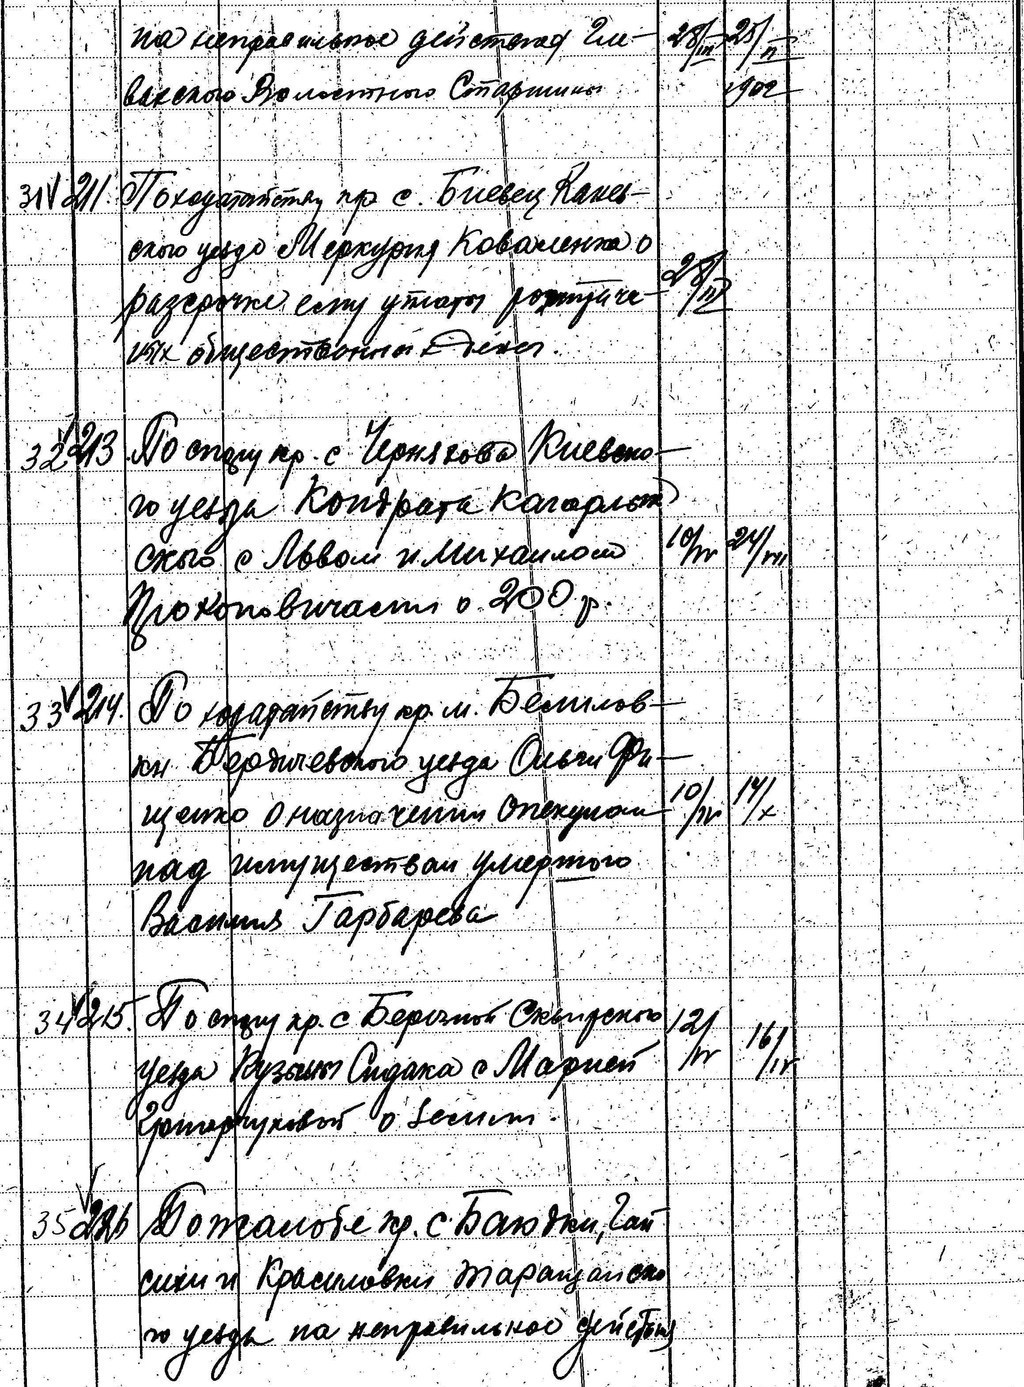 на неправильное действия Гле- 28/III 25/II
вахского Волостного Старшины 1902
31 211. По ходатайству кр. с. Биевец Канев-
ского уезда Меркурия Коваленко о
разсрочке ему уплаты 28/III
общественных денег.
32 213 По спору кр. с Черняхова Киевско-
го уезда Кондрата Кагарлык
ского с Львом и Михаилом 10/IV 24/VII
Прокоповичами о 200 р.
33 214. По ходатайству кр. м. Белилов-
ки Бердичевского уезда Ольги Фи-
щенко о назначении опекунам 10/IV 14/X
над имуществом умершого
Василия Гарбарева
34 215. По спору кр. с Березной Сквирского 12/IV 16/IV
уезда Кузьмы Сидака с Марией
о земли.
35 По жалобе кр. с. Баюдки, Гай
сихи и Красиловки Таращанско
го уезда на неправильное действия